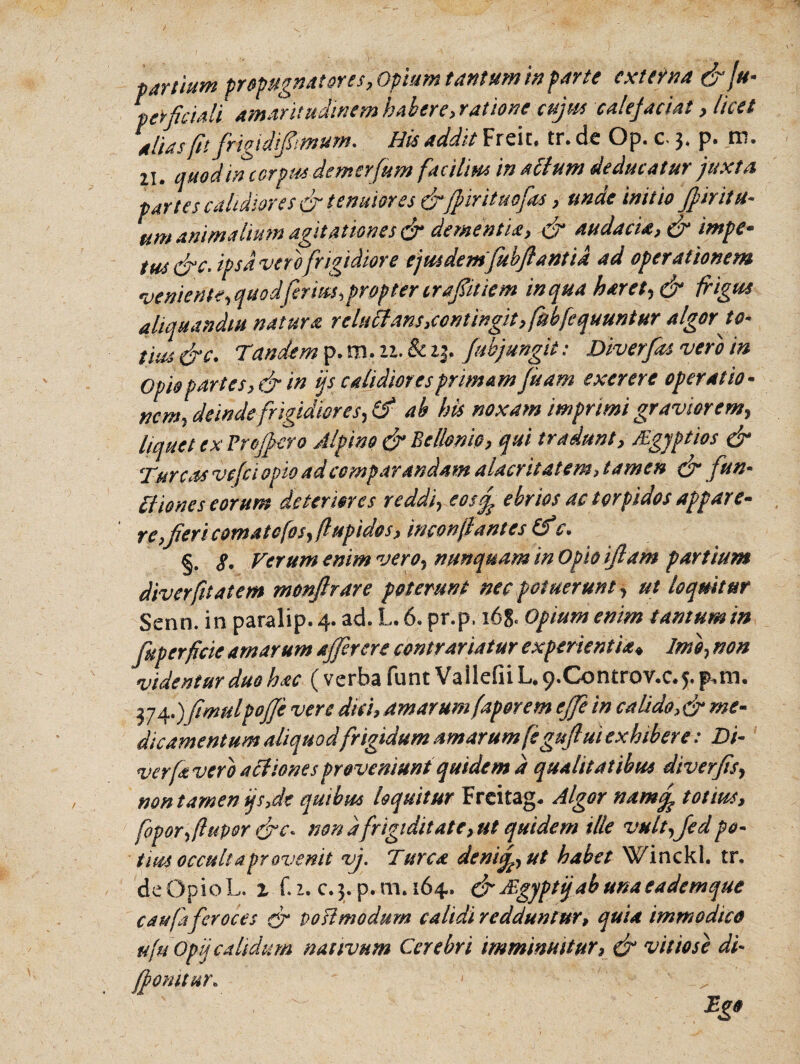 partium propugnatores, Opium tantum in parte externa & ſu-
perficiali amaritudinem habere, ratione cujus calefaciat, licet
alias ſit frigidiſsimum. His addit Freit. tr. de Op. c. 3. p. m.
21. quod in corpus demerſum facilius in actum deducatur juxta
partes calidiores & tenuiores & ſpirituoſas, unde initio ſpiritu-
um animalium agitationes & dementiæ, & audaciæ, & impe-
tus &c. ipsâ verò frigidiore ejusdem ſubſtantiâ ad operationem
veniente, quod ſerius, propter craſsitiem in qua hæret, & frigus
aliquandiu naturæ reluctans, contingit, ſubſequuntur algor to-
tius &c. Tandem p. m. 22. & 23. ſubjungit: Diverſas verò in
Opio partes, & in ijs calidiores primam ſuam exerere operatio-
nem, deinde frigidiores, & ab his noxam imprimi graviorem,
liquet ex Proſpero Alpino & Bellonio, qui tradunt, Ægyptios &
Turcas veſci opio ad comparandam alacritatem, tamen & fun-
ctiones eorum deteriores reddi, eosq; ebrios ac torpidos appare-
re, fieri comatoſos, ſtupidos, inconſtantes &c.
§. 8. Verum enim vero, nunquam in Opio iſtam partium
diverſitatem monſtrare poterunt nec potuerunt, ut loquitur
Senn. in paralip. 4. ad. L. 6. pr. p. 168. Opium enim tantum in
ſuperficie amarum aſſerere contrariatur experientiæ. Imò, non
videntur duo hæc (verba ſunt Valleſii L. 9. Controv. c. 5. p. m.
374.) ſimul poſſe vere dici, amarum ſaporem eſſe in calido, & me-
dicamentum aliquod frigidum amarum ſe guſtui exhibere: Di-
verſæ verò actiones proveniunt quidem à qualitatibus diverſis,
non tamen ijs, de quibus loquitur Freitag. Algor namq; totius,
ſopor, ſtupor &c. non à frigiditate, ut quidem ille vult, ſed po-
tius occulta provenit vj. Turcæ deniq;, ut habet Winckl. tr.
de Opio L. 1 ſ. 2. c. 3. p. m. 164. & Ægyptij ab una eademque
cauſa feroces & poſtmodum calidi redduntur, quia immodico
uſu Opij calidum nativum Cerebri imminuitur, & vitiosè di-
ſponitur.
Ego